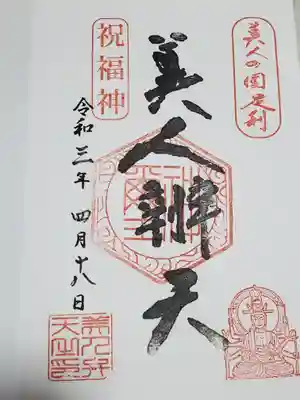 美人の国足利
美人辨天
祝福神
令和三年 四月十八日